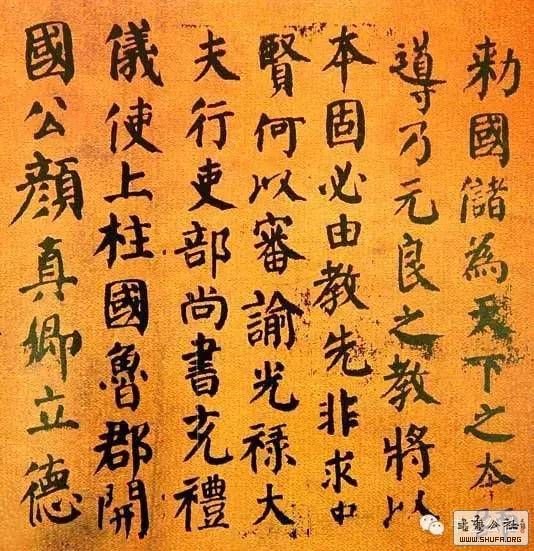 勅國儲為天下之本
導乃元良之教將以
本固必由教先非求中
賢何以審諭光禄大
夫行吏部尚書充禮
儀使上柱國魯郡開
國公顏真卿立德
公社
WWW.SHUFA.ORG